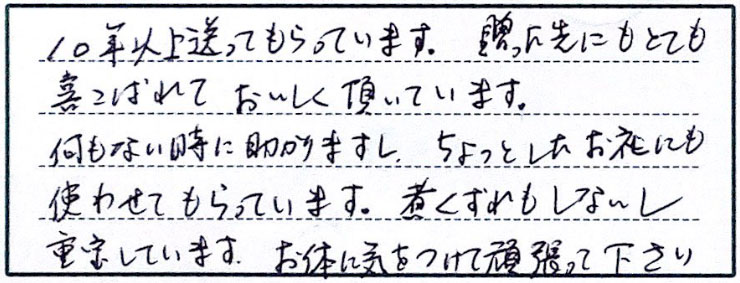 10年以上送ってもらっています。贈った先にもとても
喜こばれて おいしく頂いています。
何もない時に助かりますし、ちょっとしたお礼にも
使わせてもらっています。煮くずれもしないし
重宝しています。お体に気をつけて頑張って下さい